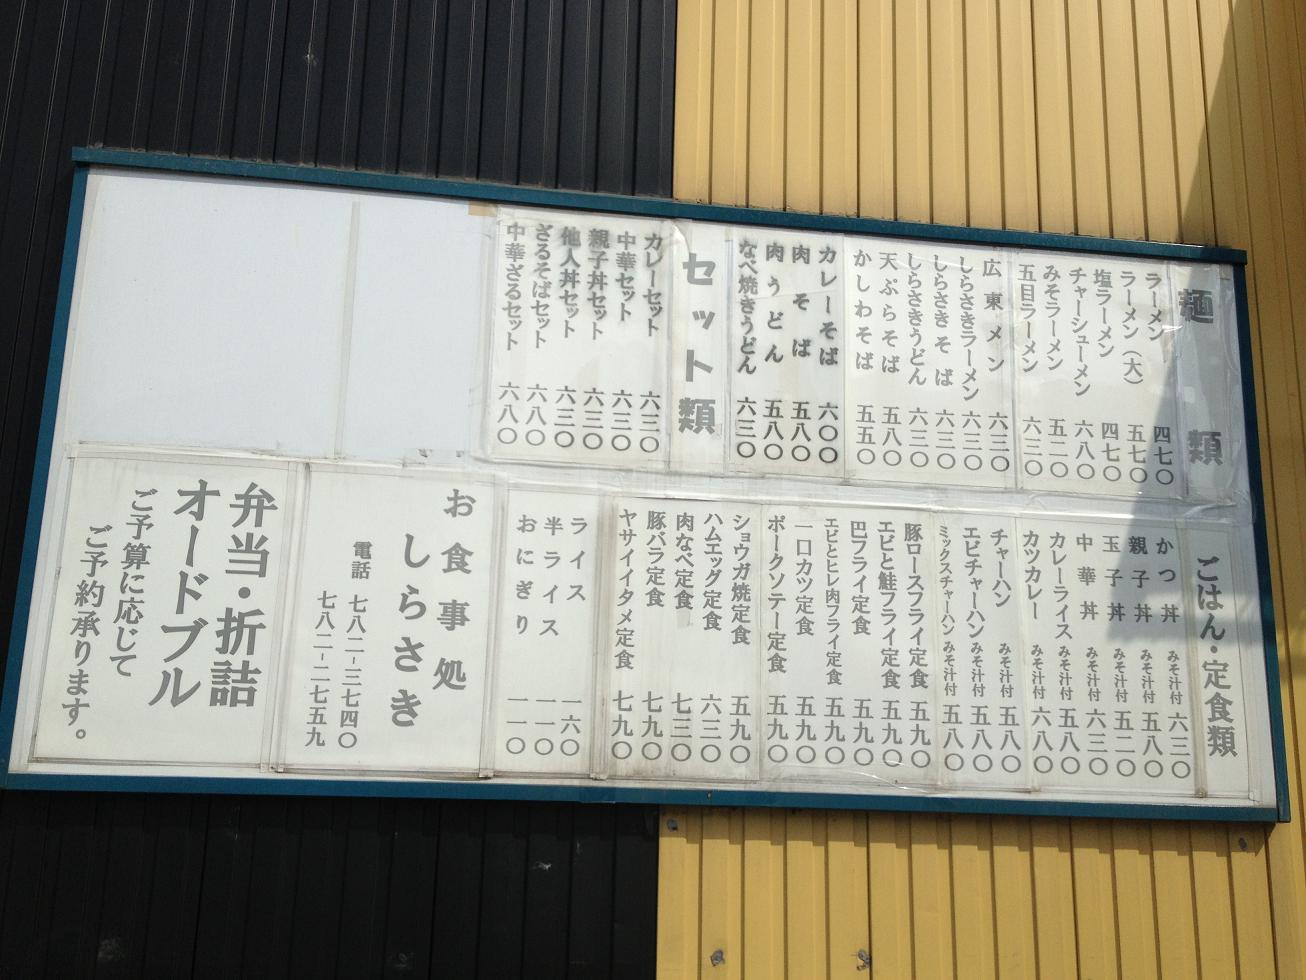 麺類
ラーメン 四七〇
ラーメン（大） 五七〇
塩ラーメン 四七〇
チャーシューメン 六八〇
みそラーメン 五二〇
五目ラーメン 六三〇
広東メン 六三〇
しらさきラーメン 六三〇
しらさきそば 六三〇
しらさきうどん 六三〇
天ぷらそば 五八〇
かしわそば 五五〇
カレーそば 六〇〇
肉そば 五八〇
肉うどん 五八〇
なべ焼きうどん 六三〇
セット類
カレーセット 六三〇
中華セット 六三〇
親子丼セット 六三〇
他人丼セット 六三〇
ざるそばセット 六八〇
中華ざるセット 六八〇
ごはん・定食類
かつ丼 みそ汁付 六三〇
親子丼 みそ汁付 五八〇
玉子丼 みそ汁付 五二〇
中華丼 みそ汁付 六三〇
カレーライス みそ汁付 五八〇
カツカレー みそ汁付 六八〇
チャーハン みそ汁付 五八〇
エビチャーハン みそ汁付 五八〇
ミックスチャーハン みそ汁付 五八〇
豚ロースフライ定食 五九〇
エビと鮭フライ定食 五九〇
巴フライ定食 五九〇
エビとヒレ肉フライ定食 五九〇
一口カツ定食 五九〇
ポークソテー定食 五九〇
ショウガ焼定食 五九〇
ハムエッグ定食 六三〇
肉なべ定食 七三〇
豚バラ定食 七九〇
ヤサイイタメ定食 七九〇
ライス 一六〇
半ライス 一一〇
おにぎり 一一〇
お食事処
しらさき
電話 七八二-三七四〇
七八二-二七五九
弁当・折詰
オードブル
ご予算に応じて
ご予約承ります。